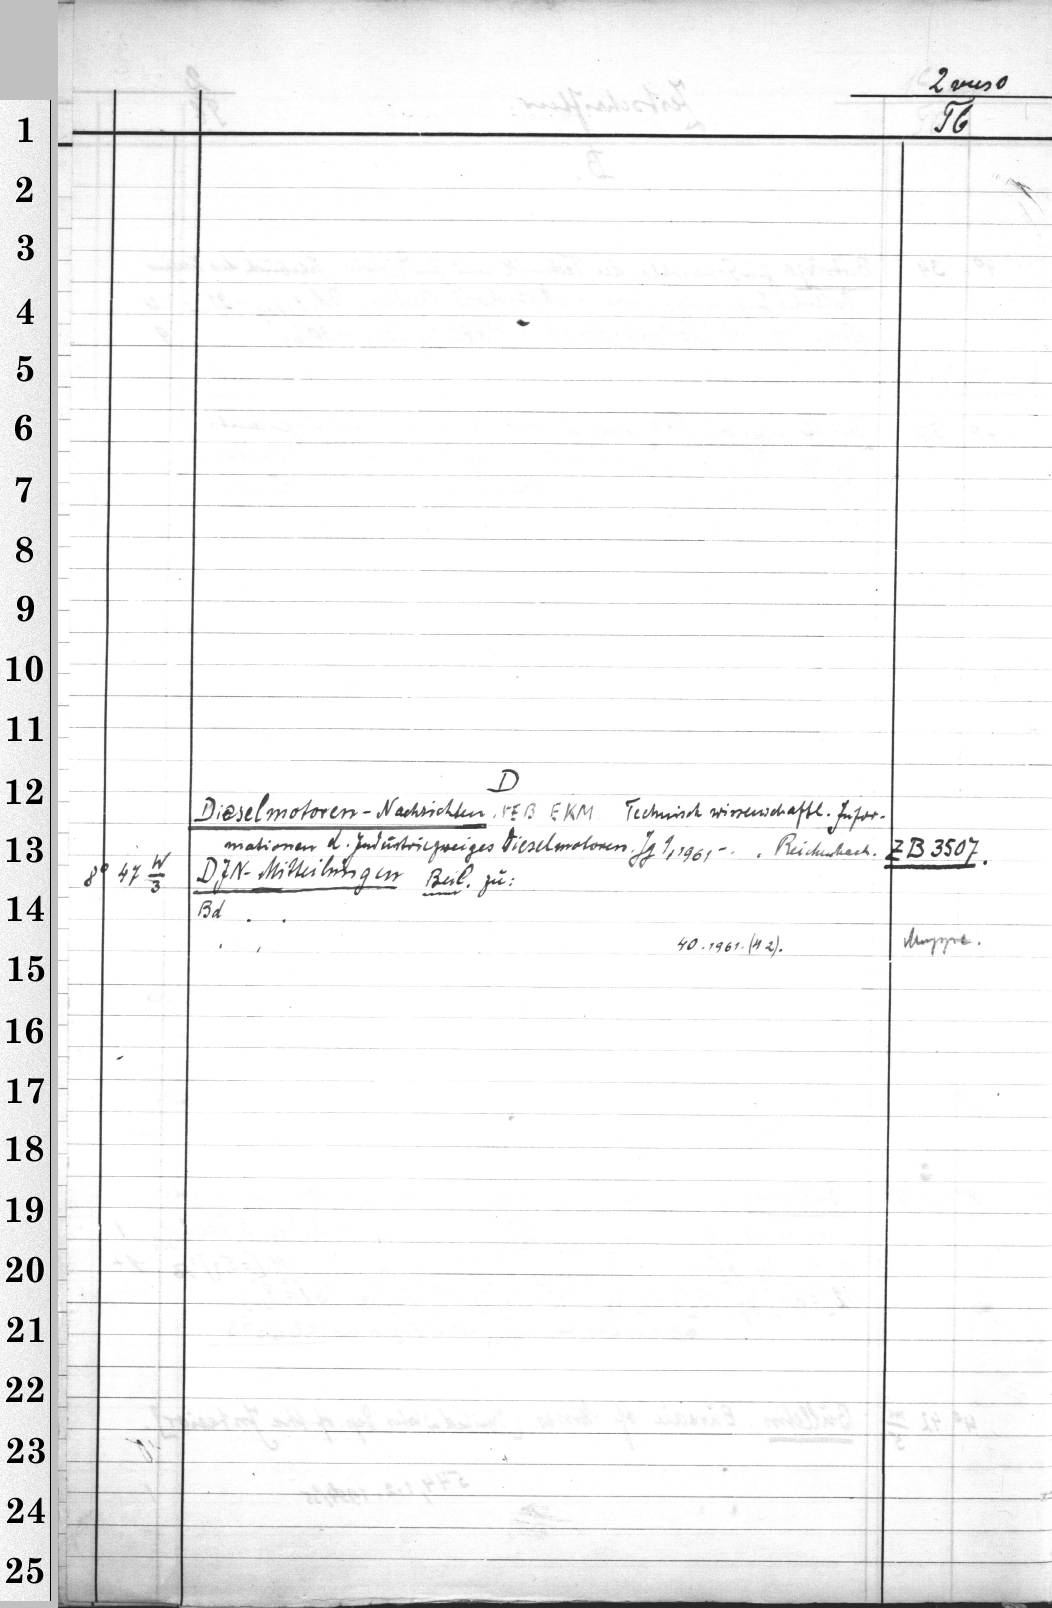 2 verso
Tb
1
2
3
4
5
6
7
8
9
10
11
D
12
Dieselmotoren-Nachrichten. VEB EKM Technisch wissenschaftl. Infor-
13
mationen d. Industriezweiges Dieselmotoren. Jg 1,1961-. . Reichenbach. ZB 3507.
8° 47 W/3 DIN-Mitteilungen Beil. zu:
14
Bd . .
40.1961.(H 2). Mappe.
15
16
17
18
19
20
21
22
23
24
25